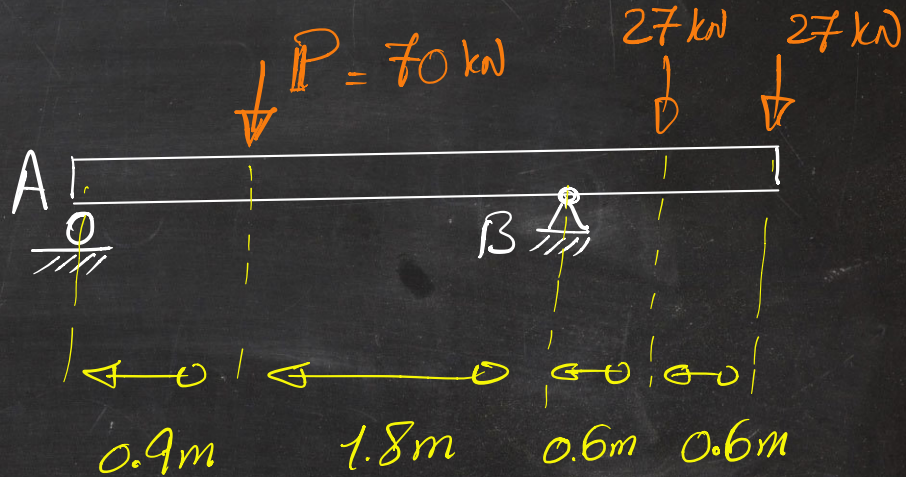 27 kN 27 kN
P = 70 kN
A
B
0.9m 1.8m 0.6m 0.6m